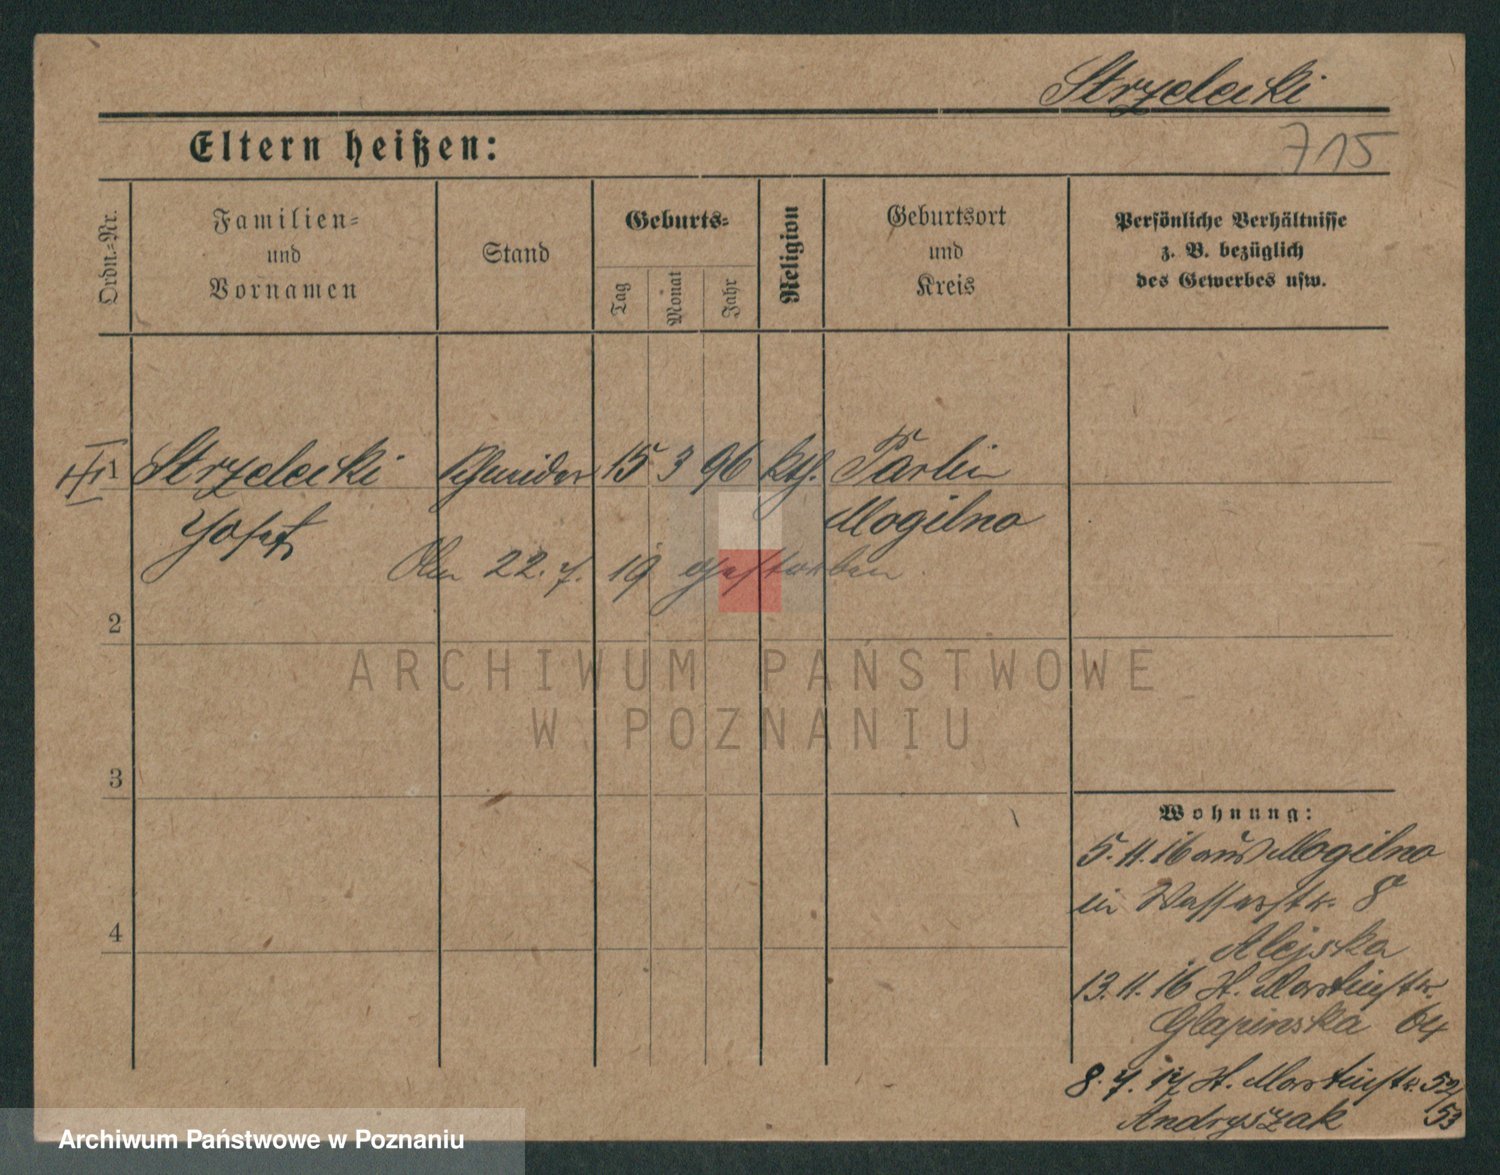 Strzelecki
Eltern heißen:
715
Ordn.=Nr.
Familien=
und
Vornamen
Stand
Geburts=
Tag
Monat
Jahr
Religion
Geburtsort
und
Kreis
Persönliche Verhältnisse
z. B. bezüglich
des Gewerbes usw.
1 Strzelecki Schneider 15 3 96 kth. Parlin
Josef Mogilno
Am 22. 7. 19 gestorben
2
ARCHIWUM PAŃSTWOWE
W POZNANIU
3
Wohnung:
5. 11. 16 aus Mogilno
in Wasserstr. 8
Alejska
4
13. 11. 16 St. Martinstr.
Glapinska 64
8. 7. 17 St. Martinstr. 52/
Andryszak 53
Archiwum Państwowe w Poznaniu